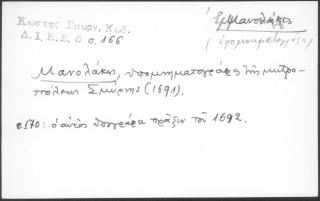 Κωστής Σπυρν. Κωδ.
Δ.Ι.Ε.Ε. 6 σ. 166
Ἐμμανολάκις
(ὑπομνηματογράφος)
Μανολάκις, ὑπομνηματογράφος τῆς μητρο-
πόλεως Σμύρνης (1691).
σ. 170: ὁ αὐτὸς ὑπογράφει πρᾶξιν τοῦ 1692.